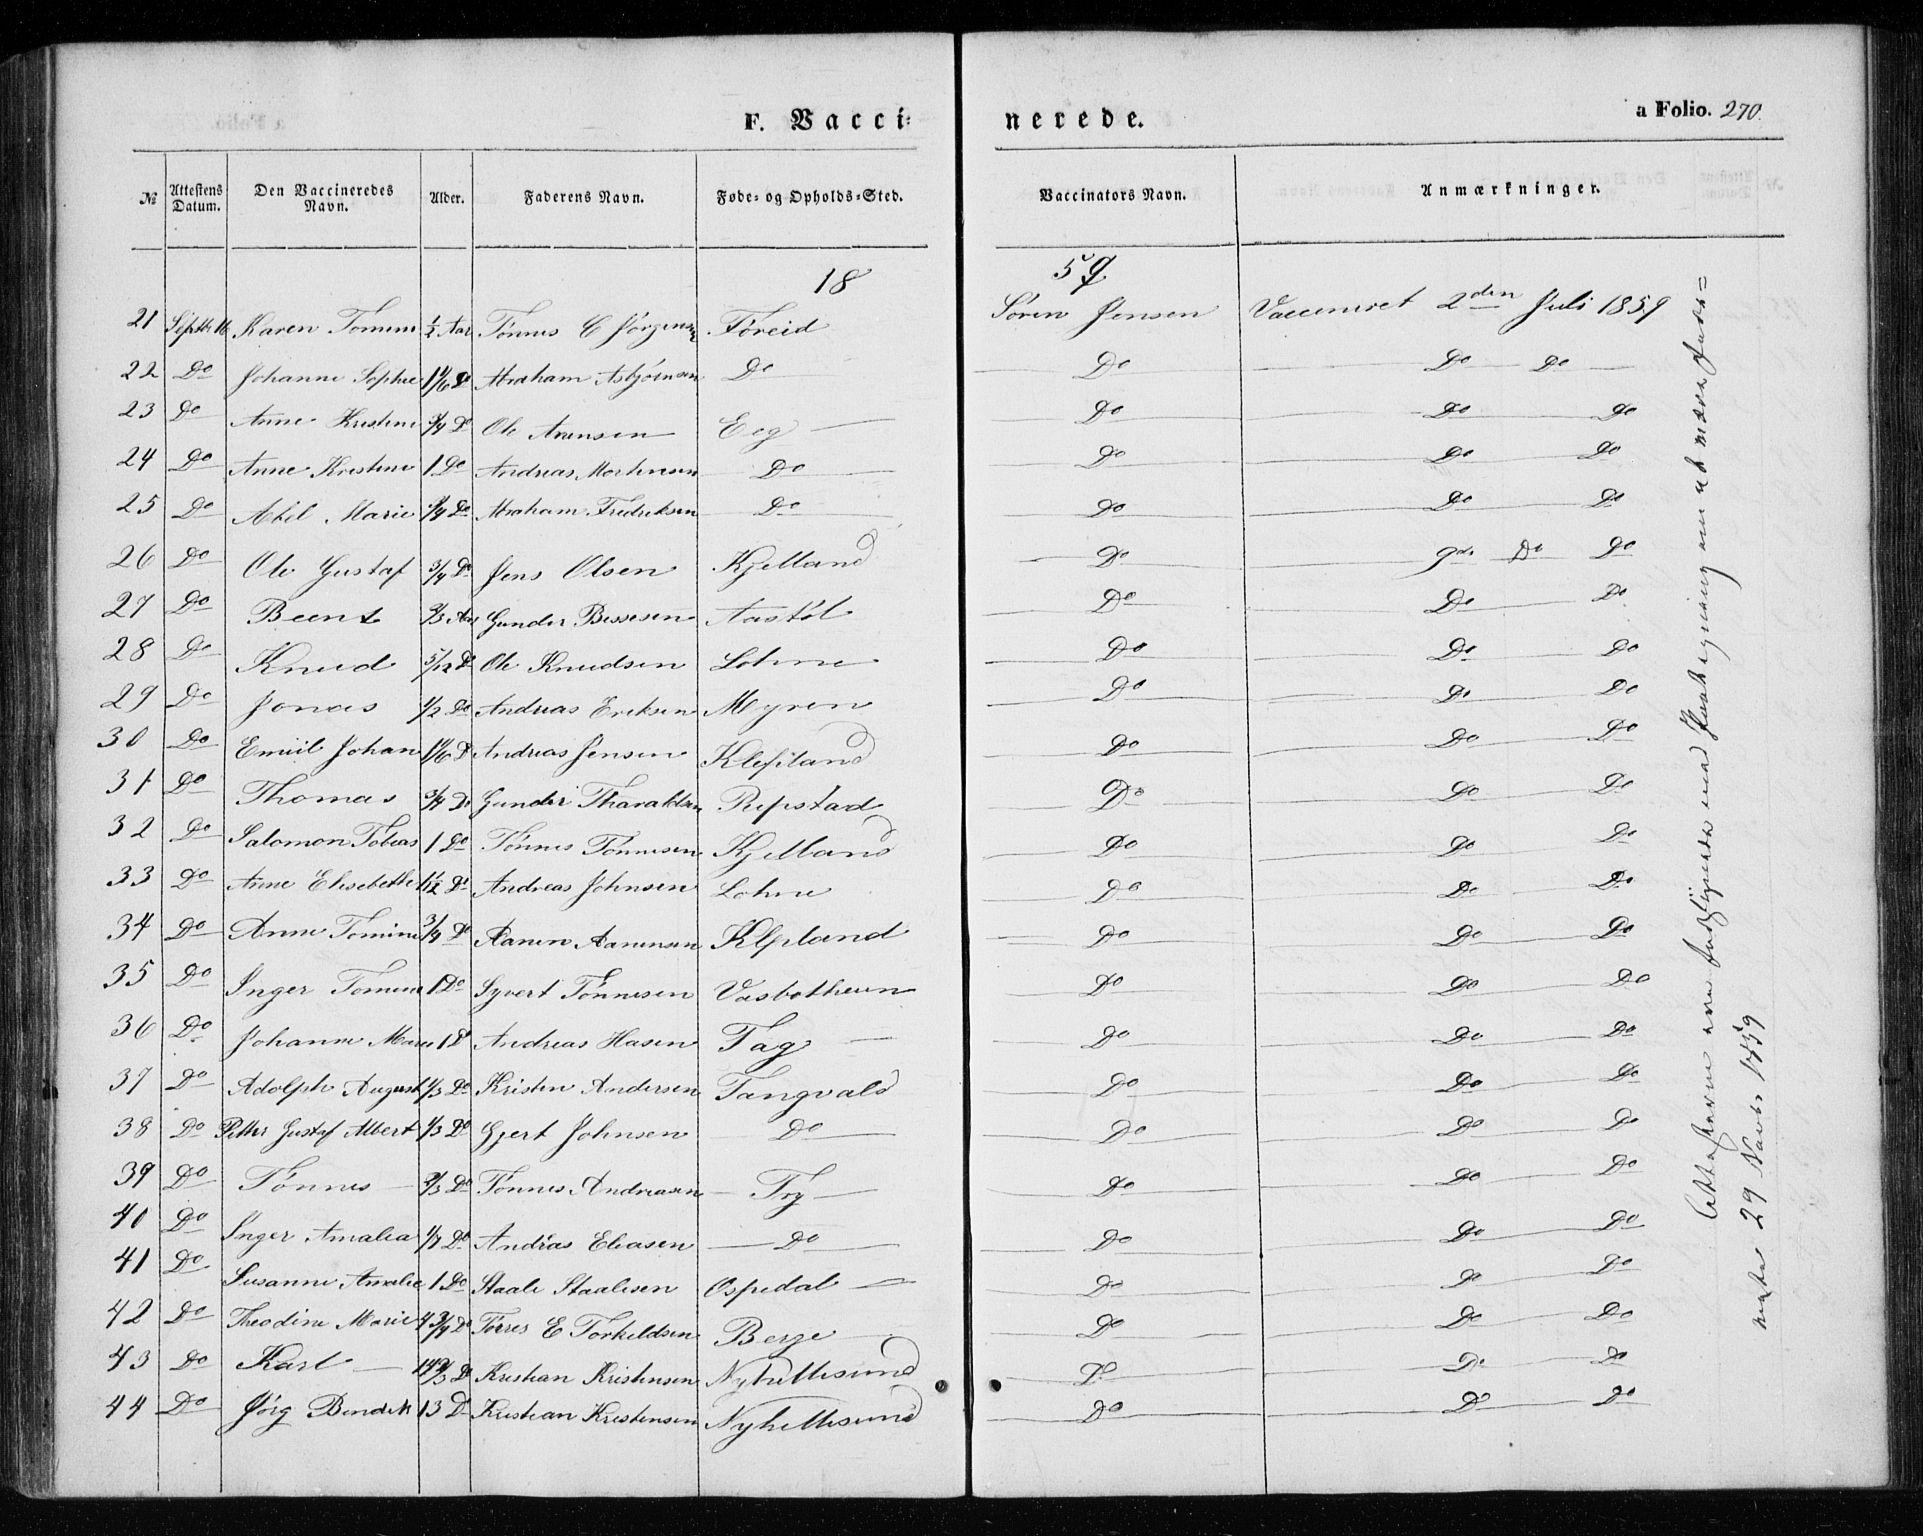 F. Vacci-nerede.
a Folio. 270.
№ | Attestens Datum. | Den Vaccineredes Navn. | Alder. | Faderens Navn. | Føde- og Opholds-Sted. | Vaccinators Navn. | Anmærkninger.
18 59
21 Septbr 16 Karen Tomine ½ Aar Tønnes C Jørgensen Føreid Søren Jensen Vaccineret 2den Juli 1859
22 Do Johanne Sophie Do Abraham Asbjørnsen Do Do Do Do
23 Do Anne Kristine ¾ Do Ole Arensen Eeg Do Do Do
24 Do Anne Kristine 1 Do Andreas Mortensen Do Do Do Do
25 Do Abel Marie ¾ Do Abraham Fredriksen Do Do Do Do
26 Do Ole Gustaf ¾ Do Jens Olsen Kjelland Do Do Do
27 Do Beent ⅔ Aar Gunder Bessesen Aastøl Do Do Do
28 Do Knud 5/12 Do Ole Knudsen Lohne Do Do Do
29 Do Jonas ½ Do Andreas Eriksen Myren Do Do Do
30 Do Emiil Johan 1 1/6 D Andreas Jensen Klepland Do Do Do
31 Do Thomas ¾ Do Gunder Tharaldsen Repstad Do Do Do
32 Do Salomon Tobias 1 Do Tønnes Tønnesen Kjelland Do Do Do
33 Do Anne Elisebethe 1 1/12 Do Andreas Johnsen Lohne Do Do Do
34 Do Anne Tomine ¾ Do Aanen Aanensen Klepland Do Do Do
35 Do Inger Tomine 1 Do Syvert Tønnesen Vasbotheien Do Do Do
36 Do Johanne Marie 1 D Andreas Hasen Tag Do Do Do
37 Do Adolph August ⅓ Do Kristen Andersen Tangvald Do Do Do
38 Do Petter Gustaf Albert ⅓ Do Gjert Johnsen Do Do Do Do
39 Do Tønnes ⅔ Do Tønnes Andreasen Try Do Do Do
40 Do Inger Amalia Do Andreas Eliasen Do Do Do Do
41 Do Susanne Amalie 1 Do Staale Staalesen Ospedal Do Do Do
42 Do Theodine Marie 4 ¾ Do Tørres E Torkeldsen Berge Do Do Do
43 Do Karl 14 ⅔ Do Kristian Kristensen Nyhellesund Do Do Do
44 Do Jørg Bendik 13 D Kristian Kristensen Nyhellesund Do Do Do
Attesterne ere
29 Novbr 1859